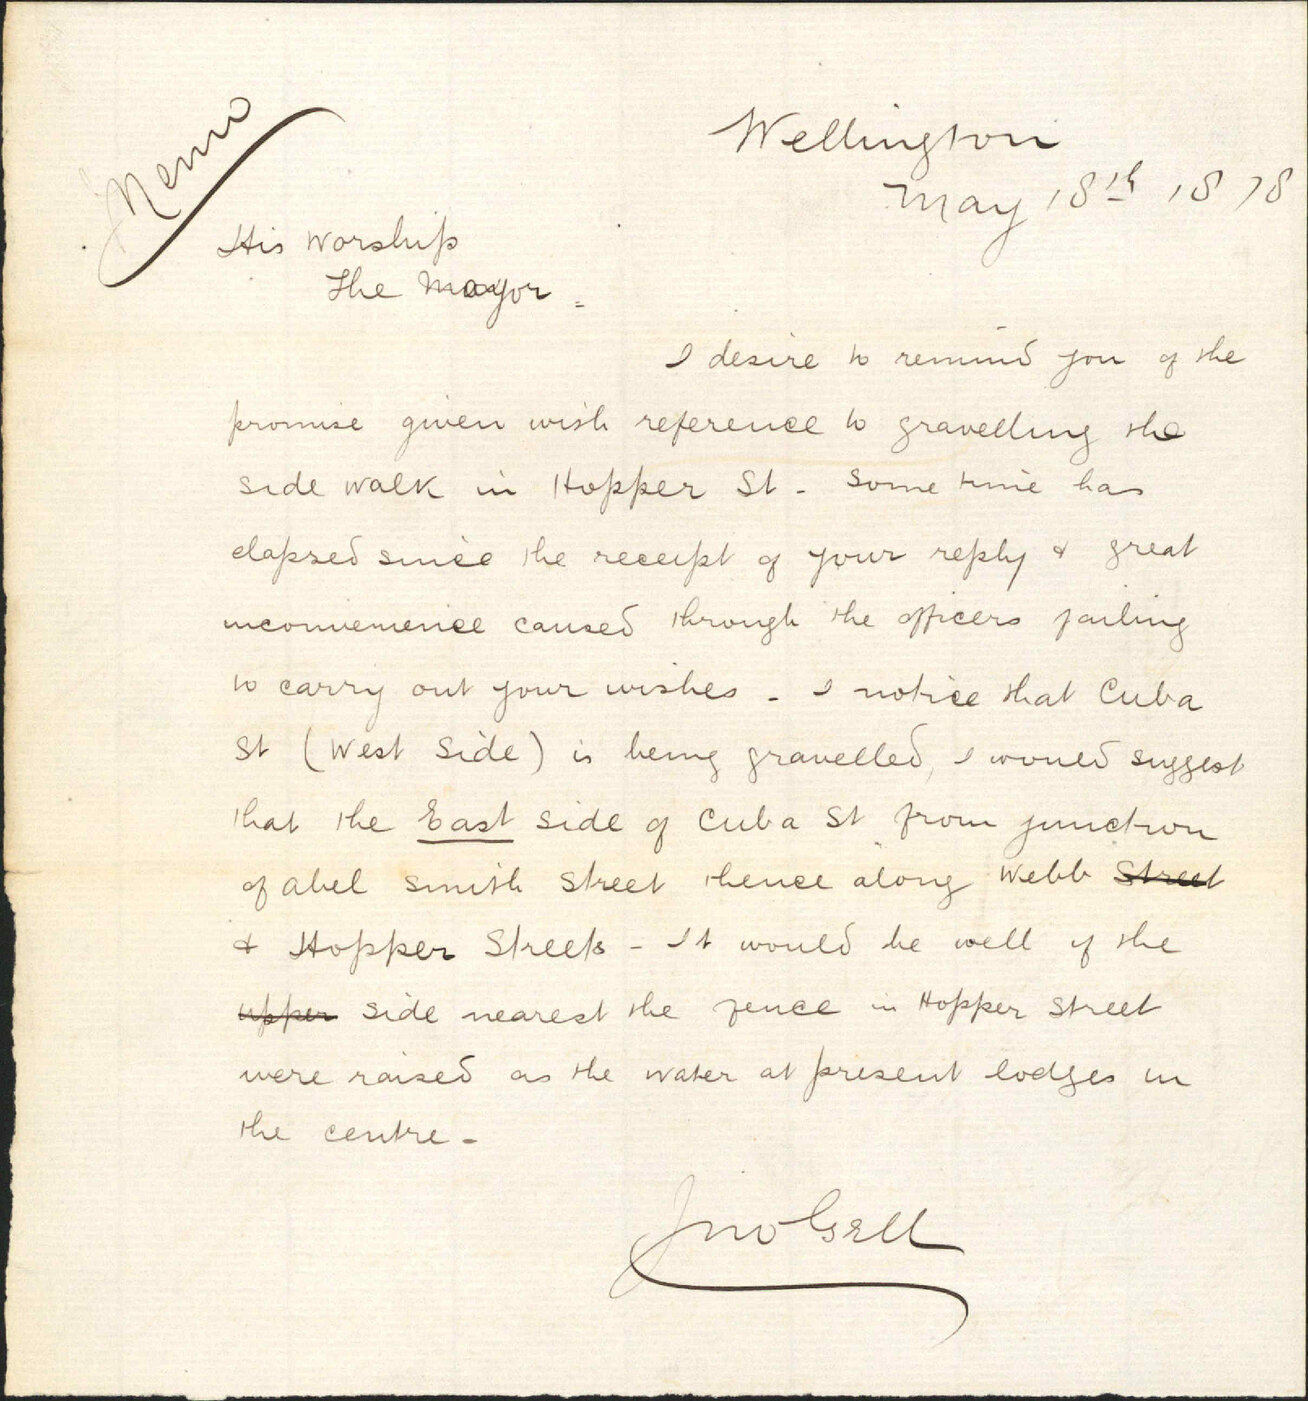 Memo
Wellington
May 18th 1878
His Worship
The Mayor =
I desire to remind you of the
promise given with reference to gravelling the
side walk in Hopper St - Some time has
elapsed since the receipt of your reply & great
inconvenience caused through the officers failing
to carry out your wishes - I notice that Cuba
St (West Side) is being gravelled, I would suggest
that the East side of Cuba St from junction
of abel smith street thence along Webb Street
& Hopper Streets - It would be well if the
upper side nearest the fence in Hopper Street
were raised as the water at present lodges in
the centre -
Jno Gell